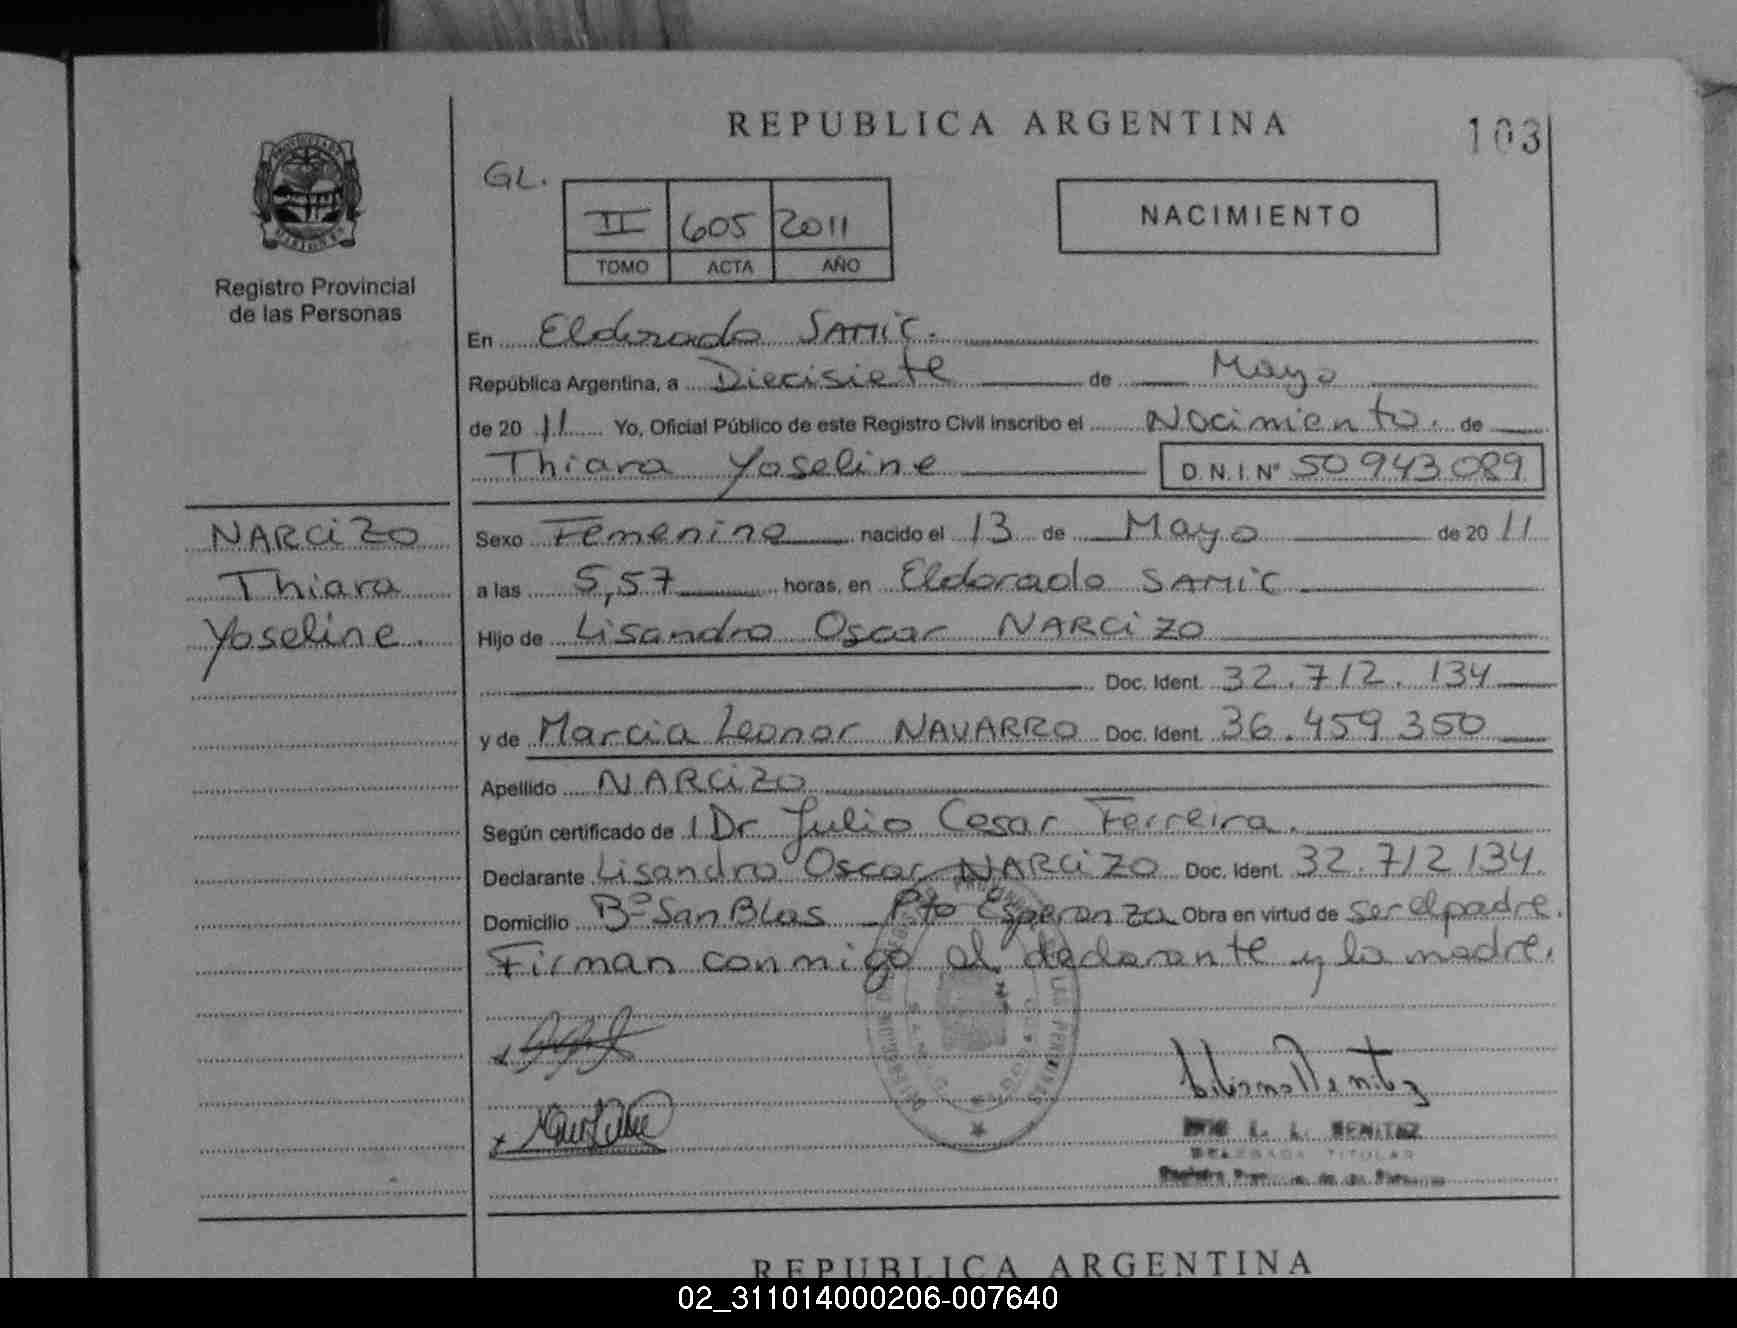 REPUBLICA ARGENTINA
103
GL.
II 605 2011
TOMO ACTA AÑO
NACIMIENTO
Registro Provincial
de las Personas
En Eldorado SAMIC.
República Argentina, a Diecisiete de Mayo
de 20 11 Yo, Oficial Público de este Registro Civil inscribo el Nacimiento. de
Thiara Yoseline D.N.I. Nº 50 943 089
NARCIZO
Thiara
Yoseline.
Sexo Femenino nacido el 13 de Mayo de 20 11
a las 5,57 horas, en Eldorado SAMIC
Hijo de Lisandro Oscar NARCIZO
Doc. Ident. 32.712.134
y de Marcia Leonor NAVARRO Doc. Ident. 36.459 350
Apellido NARCIZO
Según certificado de l Dr Julio Cesar Ferreira.
Declarante Lisandro Oscar NARCIZO Doc. Ident. 32.712 134.
Domicilio Bº San Blas Pto Esperanza Obra en virtud de ser el padre.
Firman conmigo el declarante y la madre.
L. L. BENITEZ
DELEGADA TITULAR
REPUBLICA ARGENTINA
02_311014000206-007640